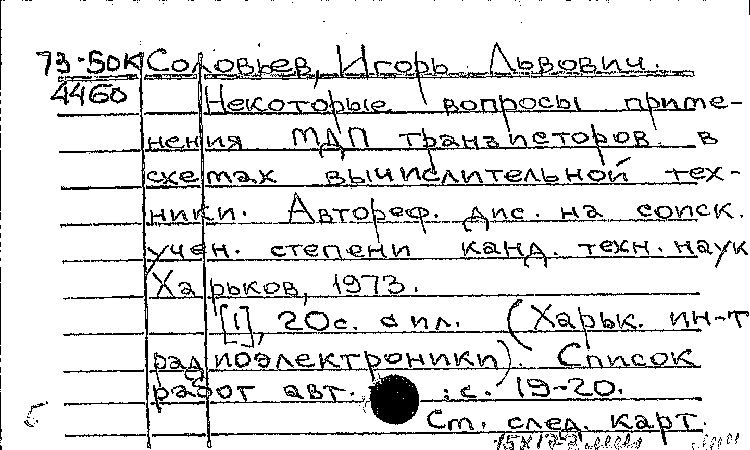 73-50К Соловьев, Игорь Львович.
4460 Некоторые вопросы приме-
нения МДП транзисторов в
схемах вычислительной тех-
ники. Автореф. дис. на соиск.
учен. степени канд. техн. наук
Харьков, 1973.
[1], 20с. с ил. (Харьк. ин-т
радиоэлектроники). Список
работ авт. : с. 19-20.
Ст. след. карт.